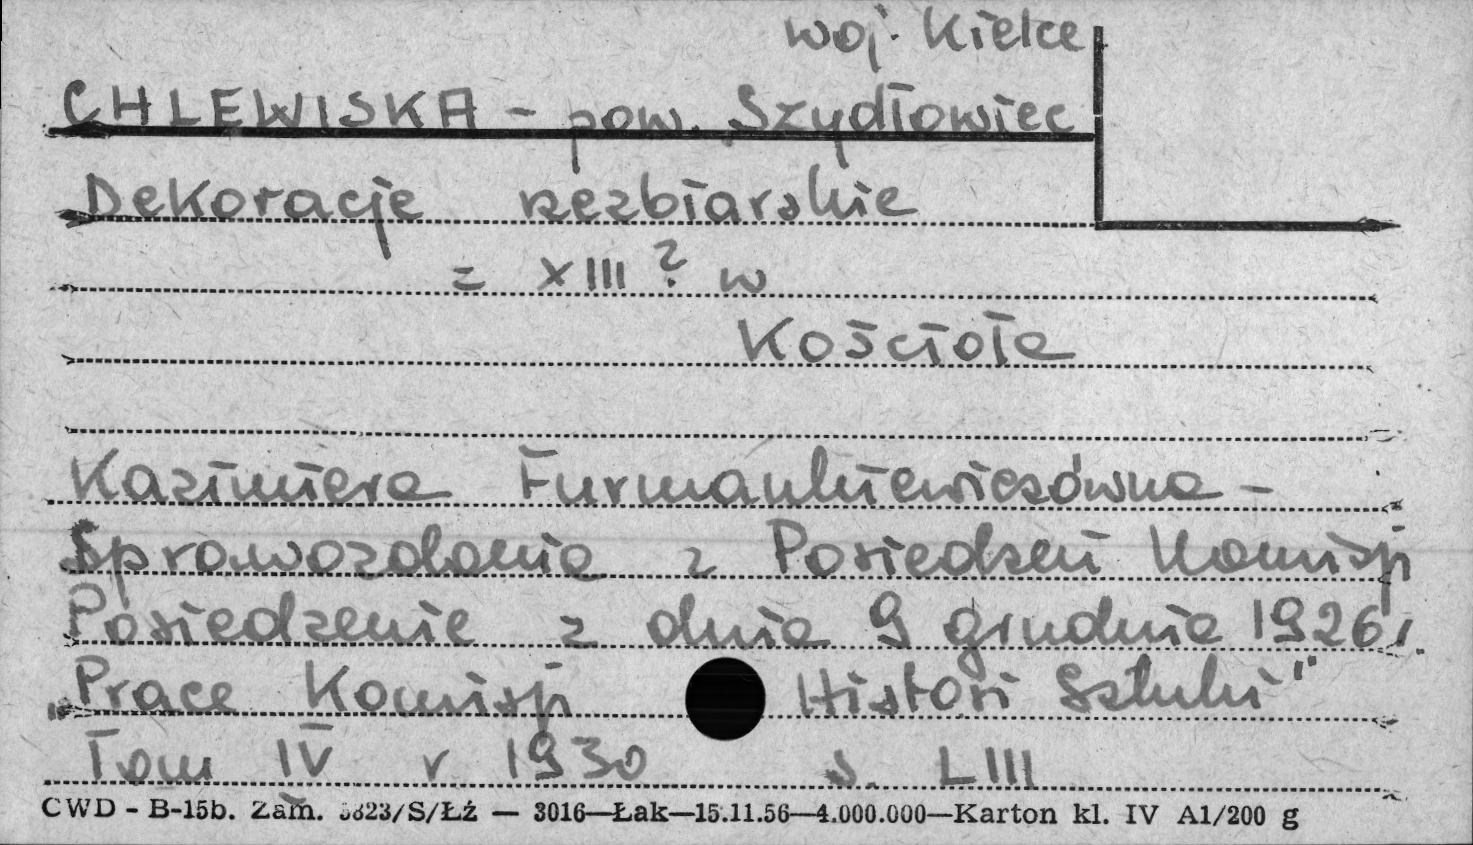 woj. Kielce
CHLEWISKA - pow. Szydłowiec
Dekoracje rzezbiarskie
z XIII ? w
Kościoła
Kazimiera Furmankiewiczówna -
Sprawozdania z Posiedzeń Komisji
Posiedzenie z dnia 9 grudnia 1926r.
„Prace Komisji Histori Sztuki"
Tom IV r 1930 s. LIII
CWD - B-15b. Zam. 5823/S/Łź — 3016—Łak—15.11.56—4.000.000—Karton kl. IV A1/200 g